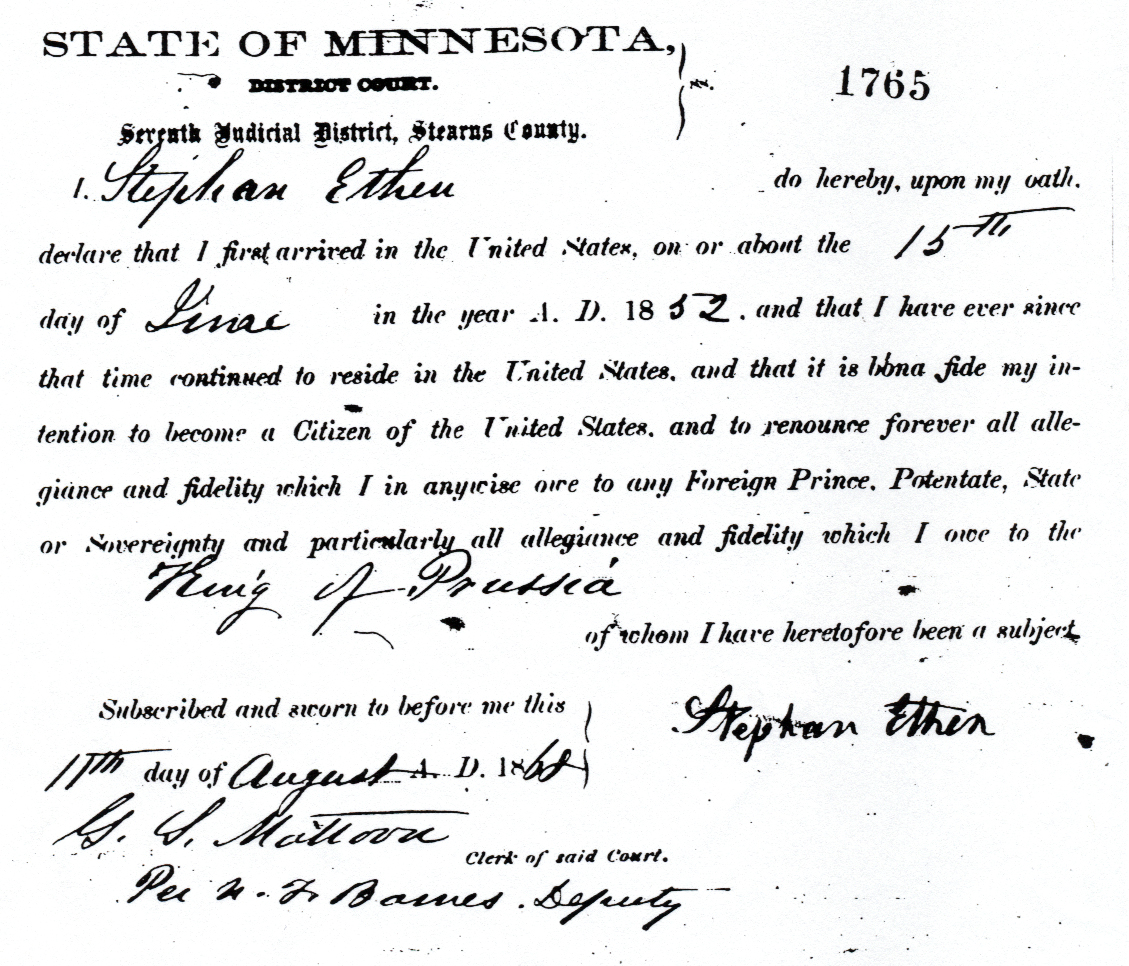 STATE OF MINNESOTA,
DISTRICT COURT.
ss.
1765
Seventh Judicial District, Stearns County.
I. Stephan Ethen do hereby, upon my oath.
declare that I first arrived in the United States, on or about the 15th
day of in the year A. D. 1852. and that I have ever since
that time continued to reside in the United States. and that it is bona fide my in-
tention to become a Citizen of the United States. and to renounce forever all alle-
giance and fidelity which I in anywise owe to any Foreign Prince. Potentate, State
or Sovereignty and particularly all allegiance and fidelity which I owe to the
King of Prussia
of whom I have heretofore been a subject
Subscribed and sworn to before me this
Stephan Ethen
11th day of August A. D. 1868
G. S. Mattoon
Clerk of said Court.
Per N. F. Barnes. Deputy